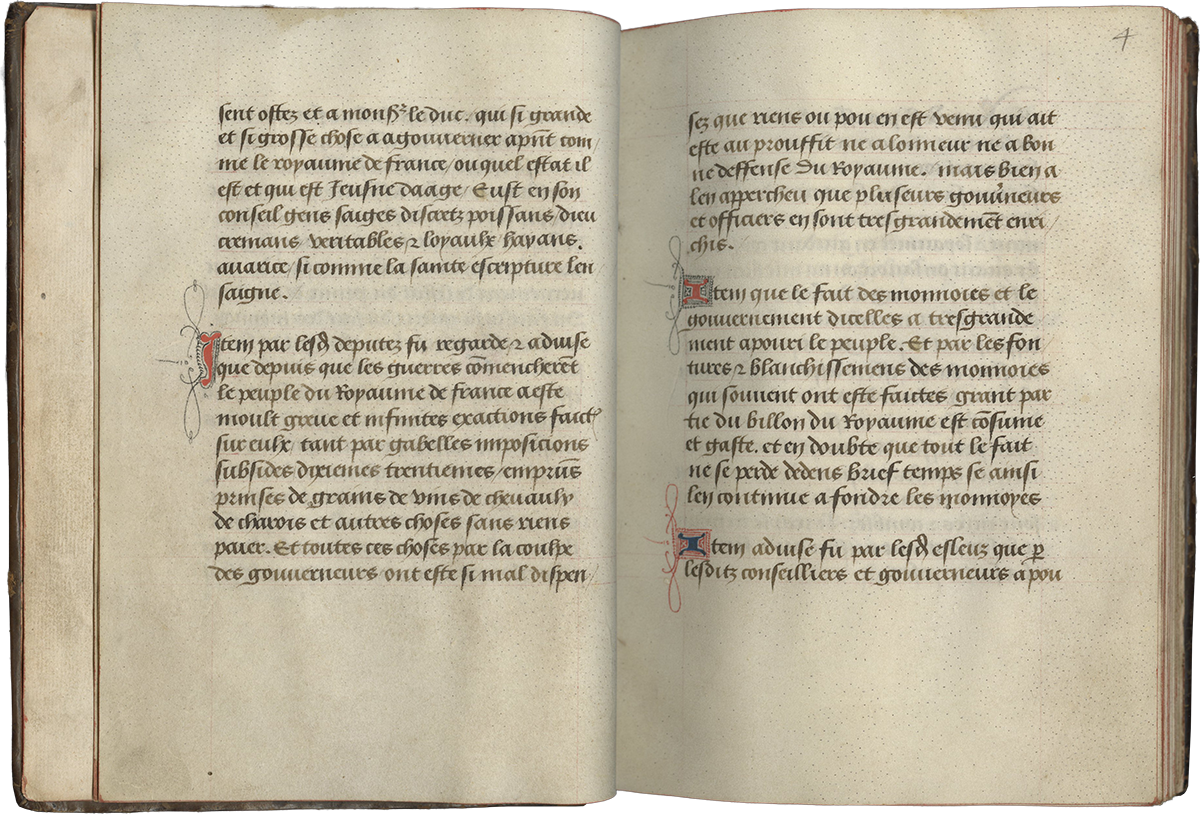 sent ostez et a monsr le duc. qui si grande
et si grosse chose a agouverner apñt com/
me le royaume de france/ ou quel estat il
est et qui est Jeusne daage/ Eust en son
conseil gens saiges discretz poissans/ dieu
cremans/ veritables ⁊ loyaulx/ hayans.
avarice/ si comme la sainte escripture len/
saigne.
Item par lesd deputez fu regarde/ ⁊ advise
que depuis que les guerres cōmencherēt
le peuple du Royaume de france a este
moult greve et infinites exactions faict
sur eulx/ tant par gabelles imposicions
subsides dixiemes trentiemes/ emprūs
prinses de grains de vins de chevaulx
de charois et autres choses sans riens
paier. Et toutes ces choses par la coulpe
des gouverneurs ont este si mal dispen/
4
sez que riens ou pou en est venu qui ait
este au prouffit ne a lonneur ne a bon
ne deffense du Royaume. mais bien a
len appercheu que plusieurs gouv̄neurs
et officiers en sont tresgrandemēt enri
chis.
Item que le fait des monnoies et le
gouvernement dicelles a tresgrande
ment apouri le peuple. Et par les fon
tures ⁊ blanchissemens des monnoies
qui souvent ont este faictes grant par
tie du billon du Royaume est cōsume
et gaste. et en doubte que tout le fait
ne se perde dedens brief temps se ainsi
len continue a fondre les monnoyes
Item advise fu par lesd esleuz que p̄
lesditz conseilliers et gouverneurs a pou